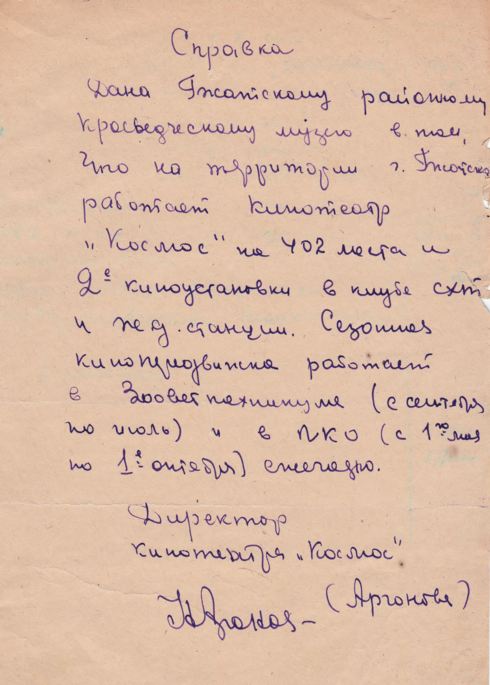 Справка
Дана Гжатскому районному
краеведческому музею в том,
что на территории г. Гжатска
работает кинотеатр
„Космос" на 402 места и
2е киноустановки в клубе схт
и жед. станции. Сезонная
кинопередвижка работает
в Зооветтехникуме (с сентября
по июль) и в ПКО (с 1го мая
по 1е октября) ежегодно.
Директор
кинотеатра „Космос"
(Аргонова)